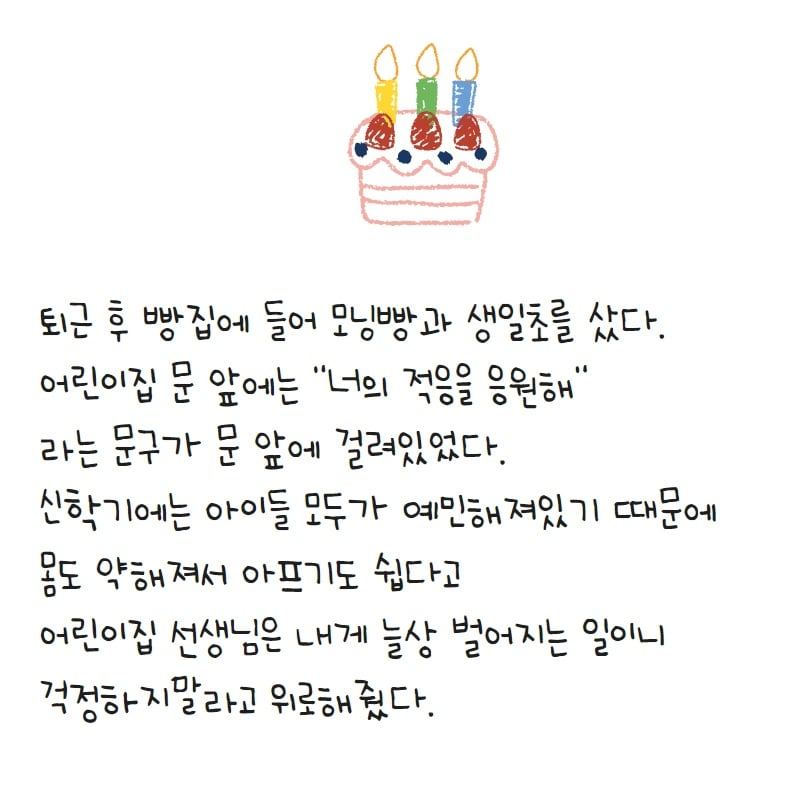 퇴근 후 빵집에 들어 모닝빵과 생일초를 샀다.
어린이집 문 앞에는 "너의 적응을 응원해"
라는 문구가 문 앞에 걸려있었다.
신학기에는 아이들 모두가 예민해져있기 때문에
몸도 약해져서 아프기도 쉽다고
어린이집 선생님은 내게 늘상 벌어지는 일이니
걱정하지말라고 위로해줬다.